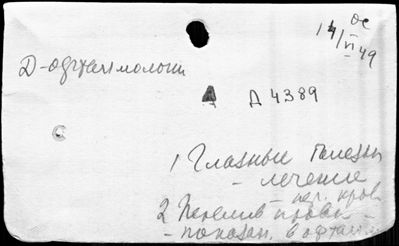 14/VI 49
Д-офталмологии
А Д 4389
С
1 Глазные болезни
- лечение
- пер. кров
2 Перелив крови -
- показан. в офталм